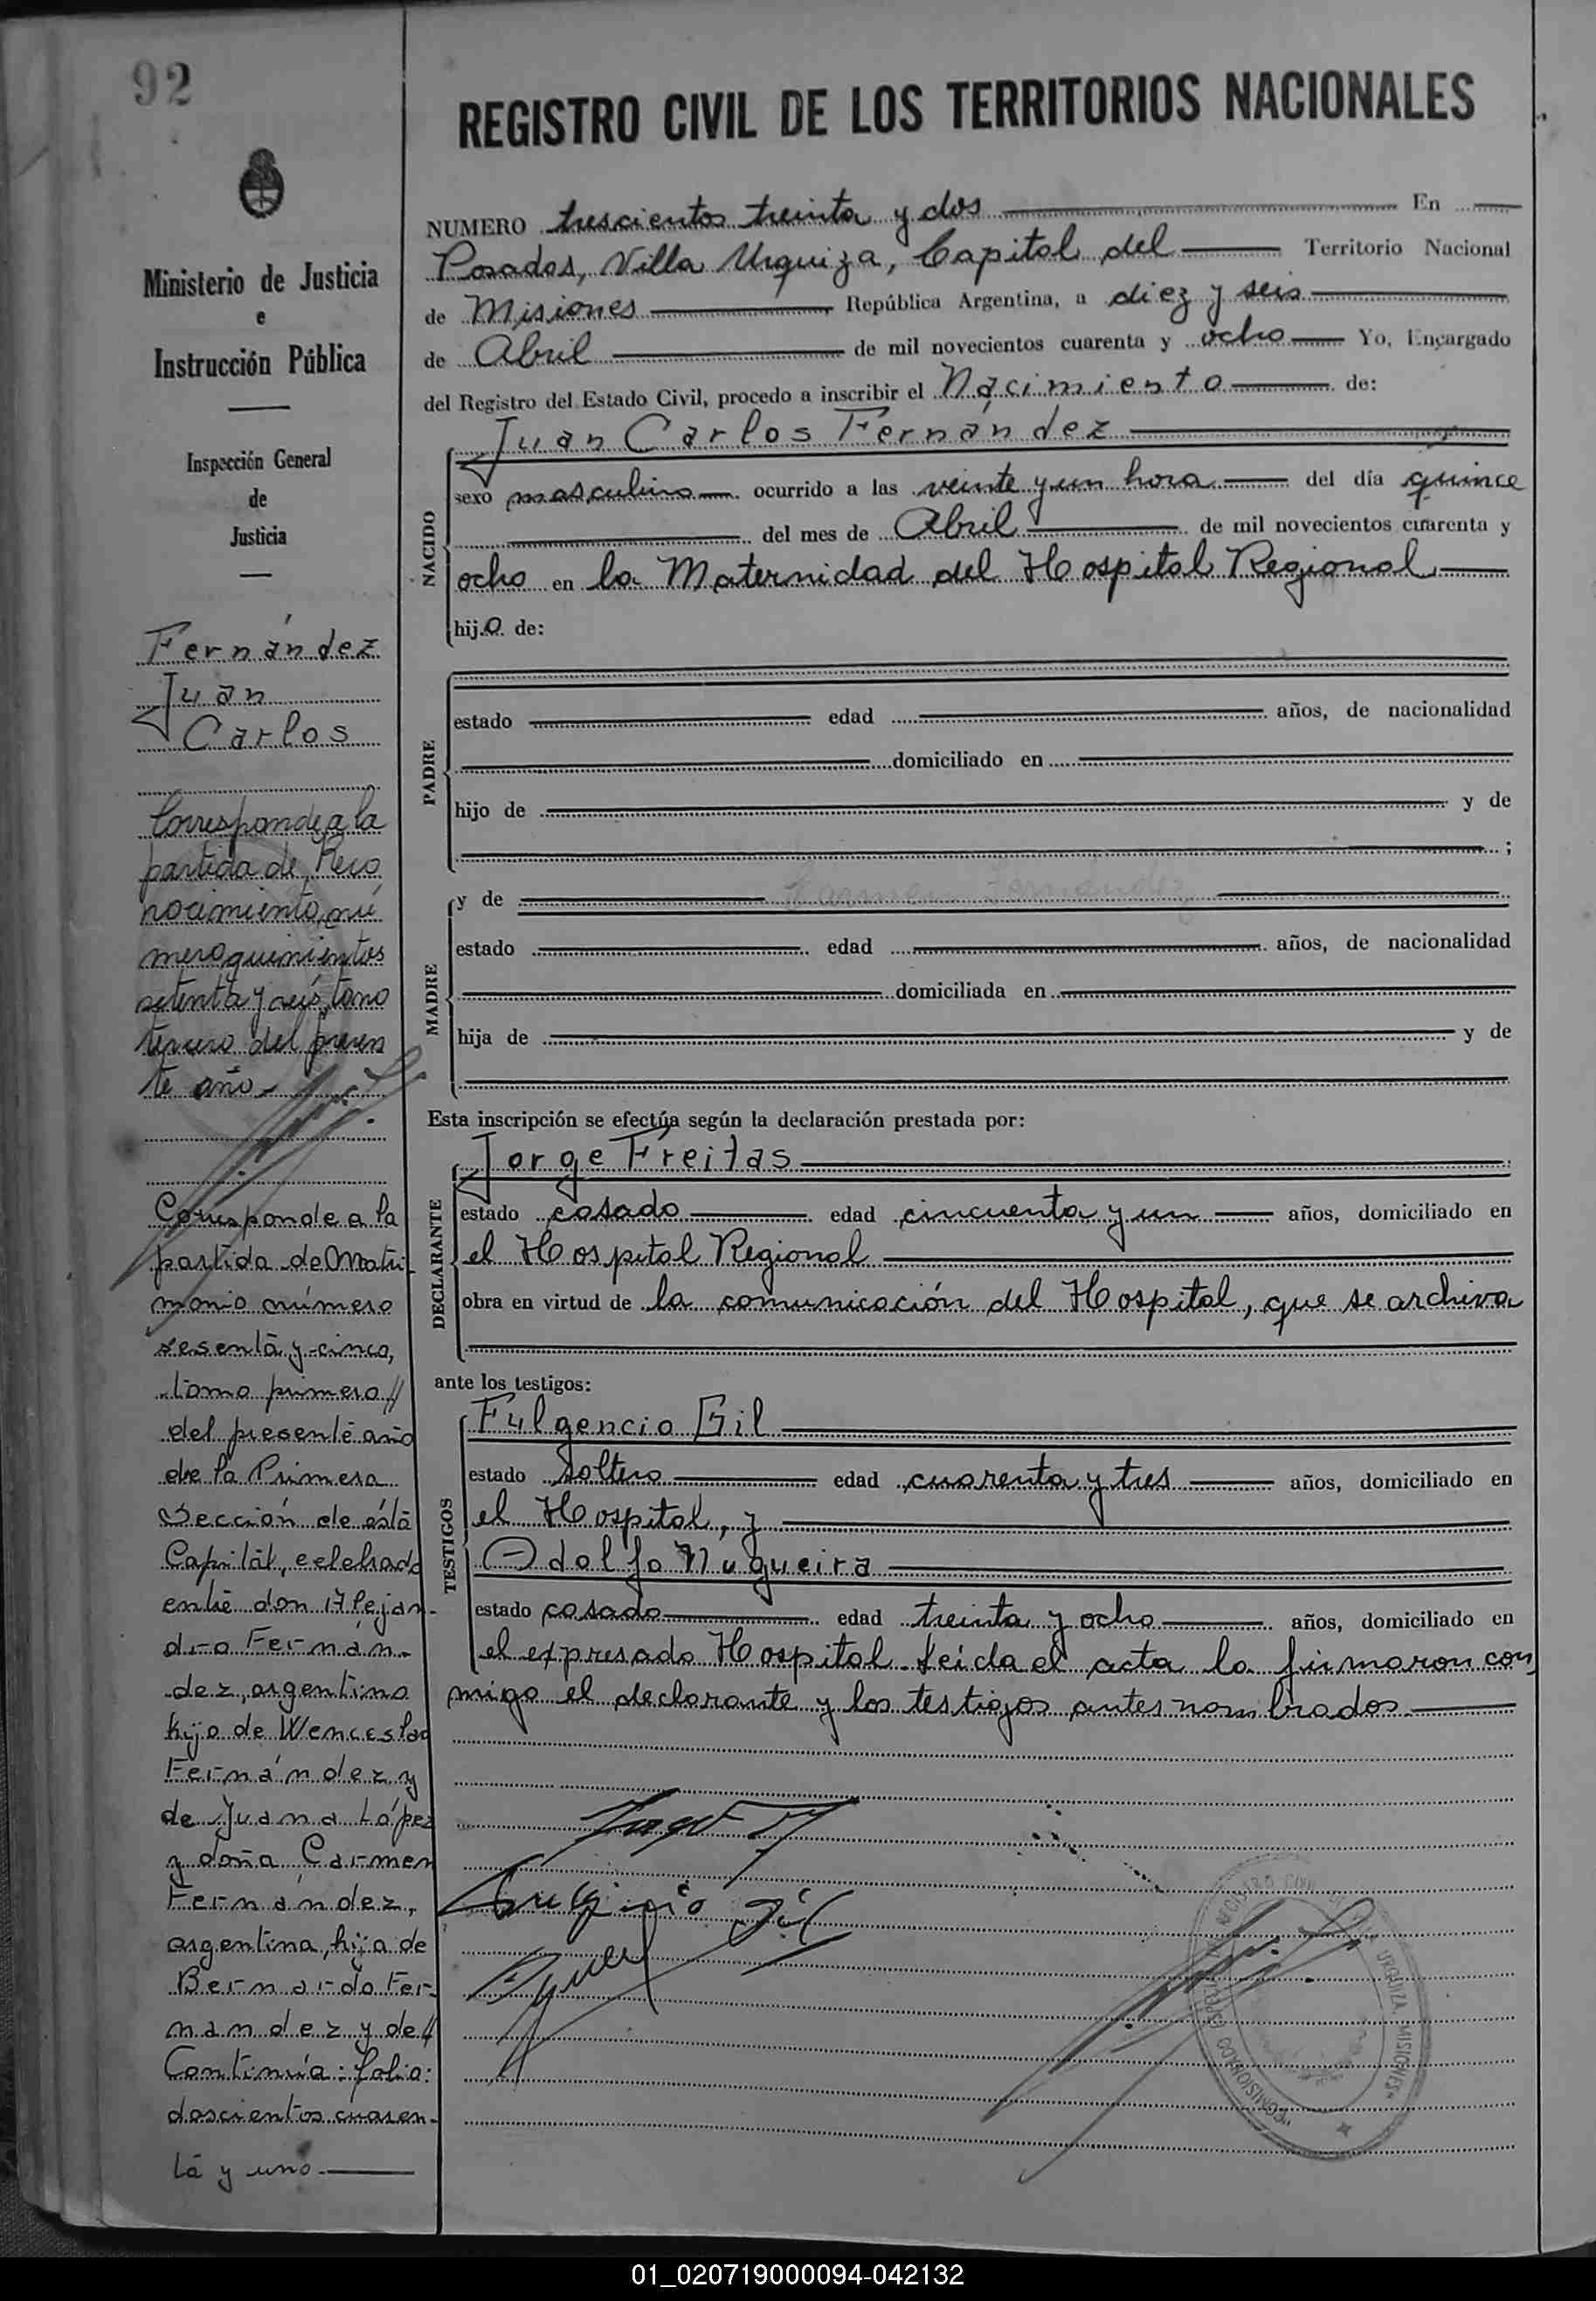 92
REGISTRO CIVIL DE LOS TERRITORIOS NACIONALES
Ministerio de Justicia
e
Instrucción Pública
Inspección General
de
Justicia
Fernández
Juan
Carlos
Corresponde a la
partida de Reco
nocimiento nú
mero quinientos
setenta y seis, tomo
tercero del presen
te año.
Corresponde a la
partida de Matri-
monio número
sesenta y cinco,
tomo primero //
del presente año
de la Primera
Sección de ésta
Capital, celebrado
entre don Alejan-
dro Fernán-
dez, argentino
hijo de Wenceslao
Fernández y
de Juana López
y doña Carmen
Fernández,
argentina, hija de
Bernardo Fer-
nandez y de //
Continúa: folio:
doscientos cuaren-
ta y uno.
NUMERO trescientos treinta y dos En
Posadas, Villa Urquiza, Capital del Territorio Nacional
de Misiones República Argentina, a diez y seis
de Abril de mil novecientos cuarenta y ocho Yo, Encargado
del Registro del Estado Civil, procedo a inscribir el Nacimiento de:
Juan Carlos Fernández
NACIDO
sexo masculino ocurrido a las veinte y un hora del día quince
del mes de Abril de mil novecientos cuarenta y
ocho en la Maternidad del Hospital Regional
hijo de:
PADRE
estado edad años, de nacionalidad
domiciliado en
hijo de y de
;
MADRE
y de Carmen Fernández
estado edad años, de nacionalidad
domiciliada en
hija de y de
Esta inscripción se efectúa según la declaración prestada por:
Jorge Freitas
DECLARANTE
estado casado edad cincuenta y un años, domiciliado en
el Hospital Regional
obra en virtud de la comunicación del Hospital, que se archiva
ante los testigos:
Fulgencio Gil
TESTIGOS
estado soltero edad cuarenta y tres años, domiciliado en
el Hospital, y
Adolfo Nugueira
estado casado edad treinta y ocho años, domiciliado en
el expresado Hospital. Leida el acta la firmaron con
migo el declarante y los testigos antes nombrados.
Fulgencio Gil
01_020719000094-042132